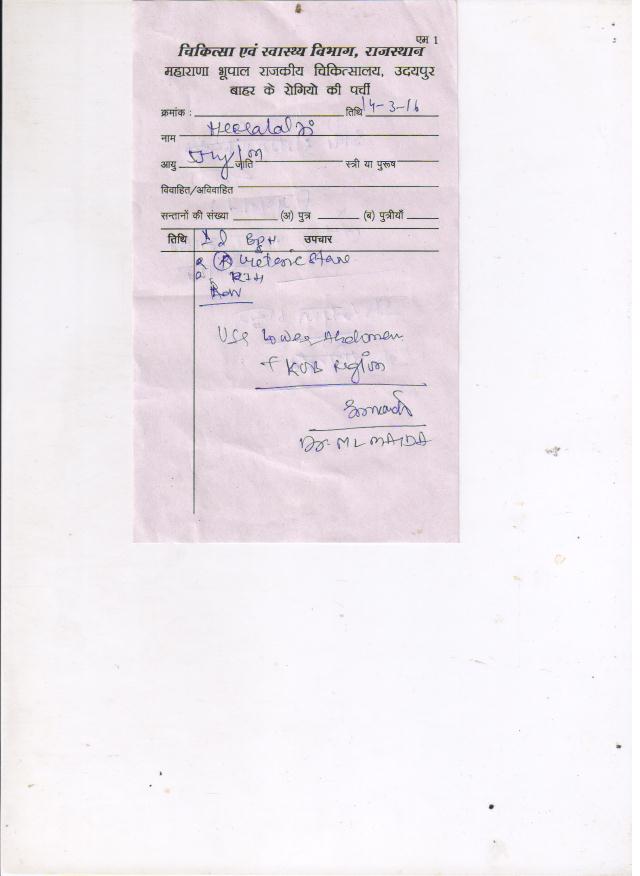 एम 1
चिकित्सा एवं स्वास्थ्य विभाग, राजस्थान
महाराणा भूपाल राजकीय चिकित्सालय, उदयपुर
बाहर के रोगियो की पर्ची
क्रमांक : तिथि 14-3-16
नाम Heeralal Ji
आयु जाति स्त्री या पुरूष
विवाहित/अविवाहित
सन्तानों की संख्या (अ) पुत्र (ब) पुत्रीयाँ
तिथि BPH उपचार
(R) Ureteric Stone
RIH
Adv
USG Lower Abdomen
+ KUB Region
Dr. ML MAIDA